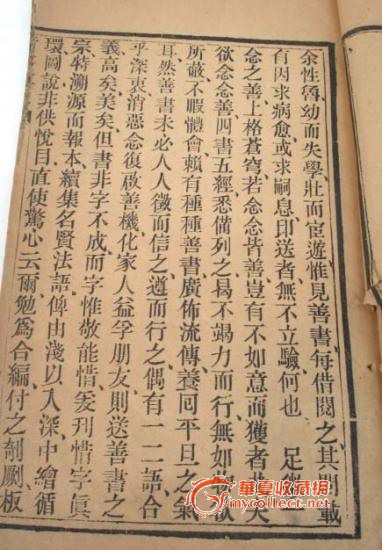 余性魯幼而失學壯而宦遊惟見善書每借閱之其間載
有因求病愈或求嗣息印送者無不立驗何也 足
念之善上格蒼穹若念念皆善豈有不如意而獲者乎夫
欲念念善四書五經悉備列之曷不竭力而行無如物欲
所蔽不暇體會賴有種種善書廣佈流傳養回平旦之氣
耳然善書未必人人徵而信之遵而行之偶有一二語合
乎深衷消惡念復啟善機化家人益孚朋友則送善書之
義高矣美矣但書非字不成而字惟敬能惜爰刊惜字眞
宗特溯源而報本續集名賢法語俾由淺以入深中繪循
環圖說非供悅目直使驚心云爾勉爲合編付之剞劂板
華夏收藏網
mycollect.com